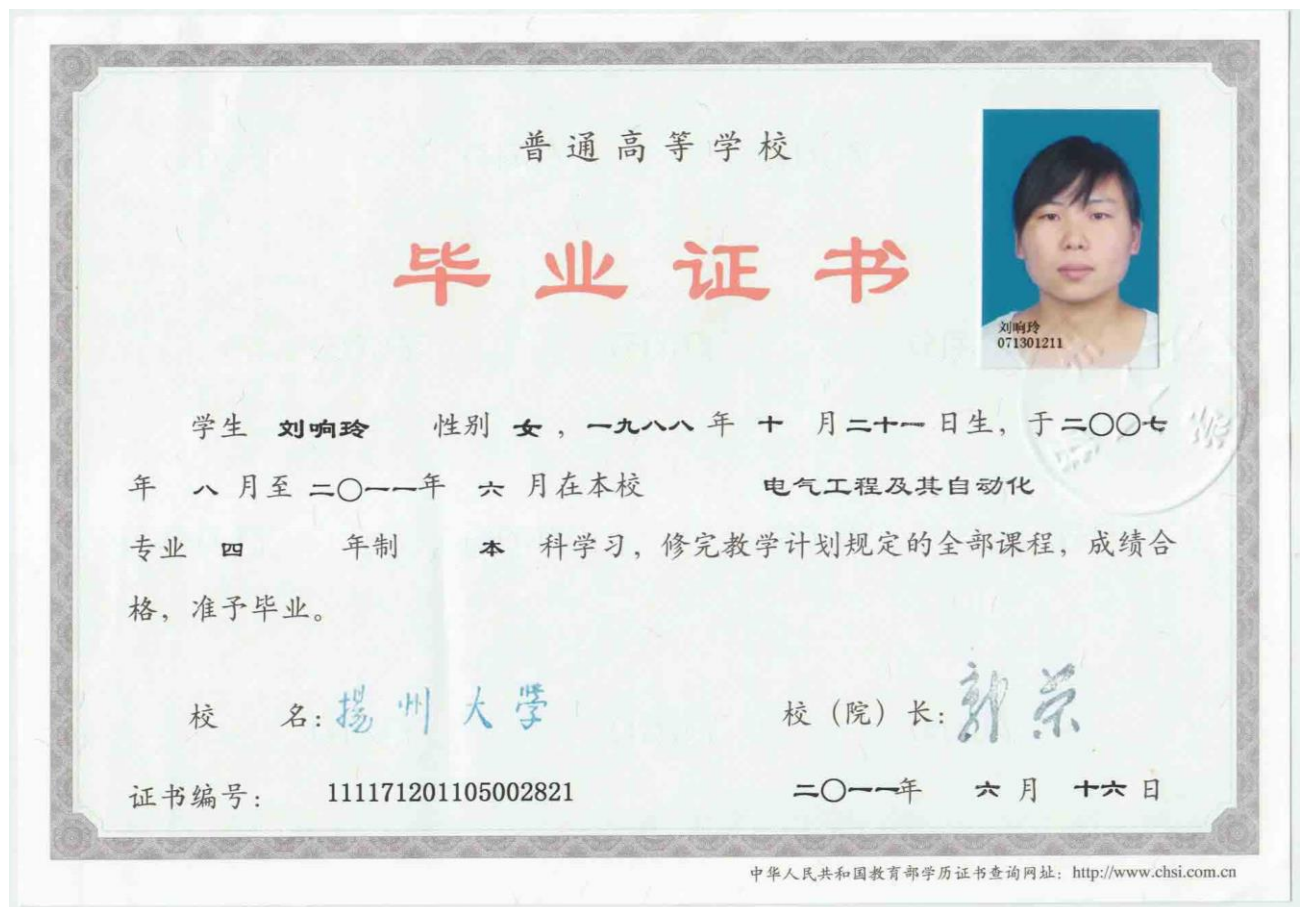 普通高等学校
毕业证书
刘响玲
071301211
学生 刘响玲 性别 女 ，一九八八 年 十 月二十一 日生，于二〇〇七
年 八 月至 二〇一一年 六 月在本校 电气工程及其自动化
专业 四 年制 本 科学习，修完教学计划规定的全部课程，成绩合
格，准予毕业。
校 名：揚州大学 校（院）长：郭荣
证书编号： 111171201105002821 二〇一一年 六 月 十六 日
中华人民共和国教育部学历证书查询网址：http://www.chsi.com.cn